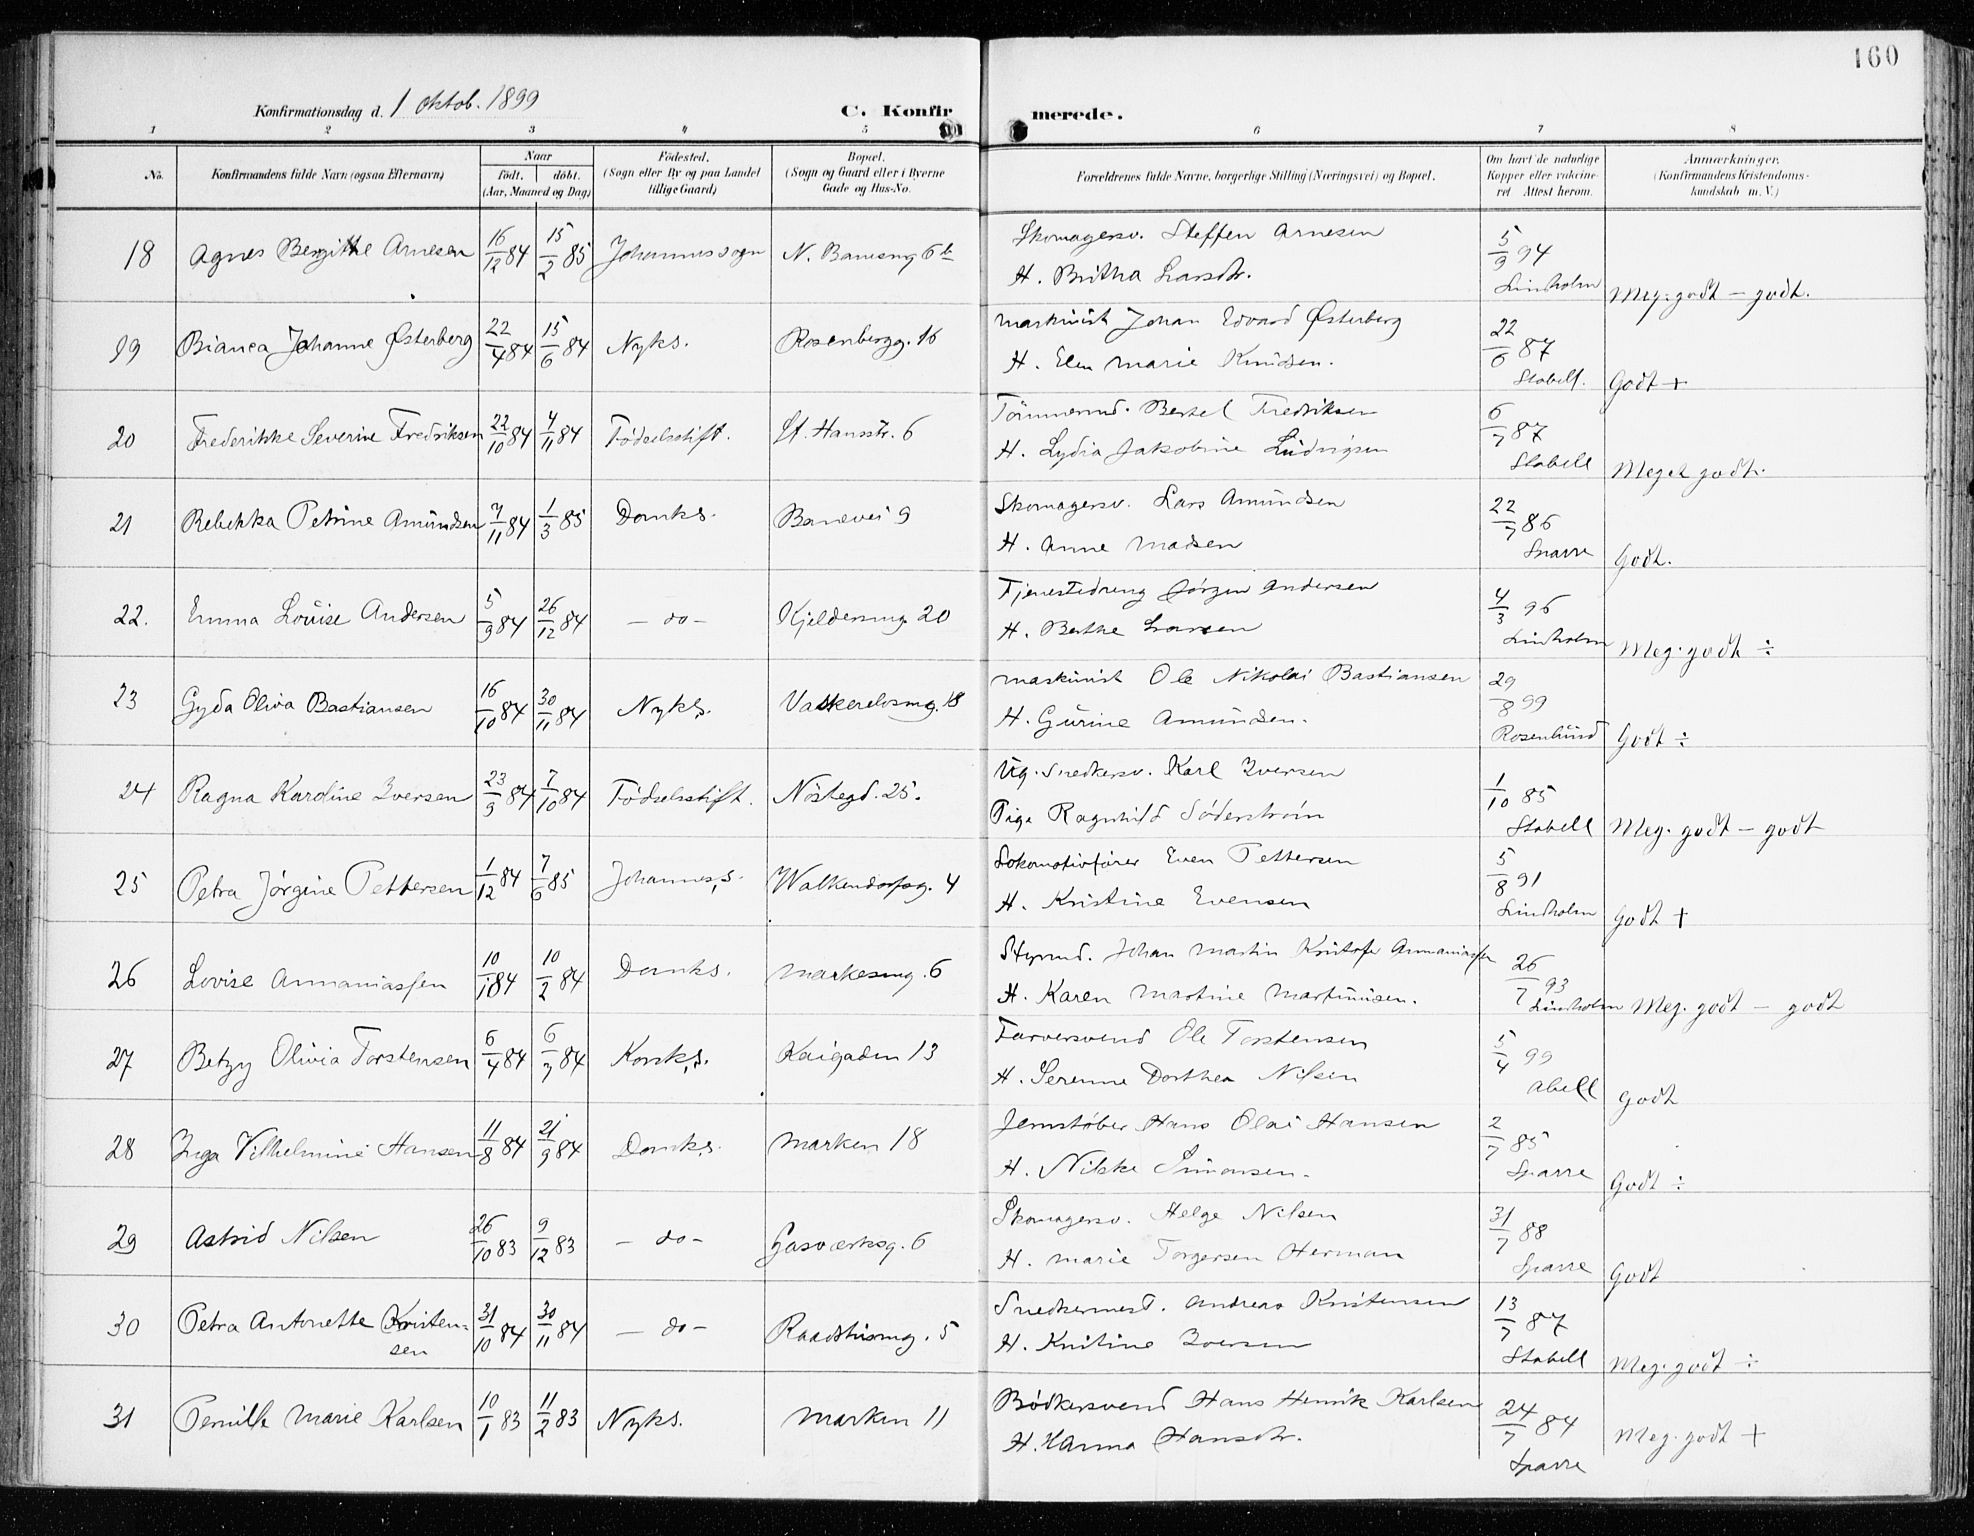 160
Konfirmationsdag d. 1 Oktob. 1899 C. Konfirmerede.
1 2 3 4 5 6 7 8
No. Konfirmandens fulde Navn (ogsaa Efternavn) Naar født. døbt. (Aar, Maaned og Dag) Fødested. (Sogn eller By og paa Landet tillige Gaard) Bopæl. (Sogn og Gaard eller i Byerne Gade og Hus-No. Forældrenes fulde Navne, borgerlige Stilling (Næringsvei) og Bopæl. Om havt de naturlige Kopper eller vakcineret Attest herom. Anmærkninger. (Konfirmandens Kristendomskundskab m. V.)
18 Agnes Bergithe Arnesen 16/12 84 15/2 85 Johannes sogn N. Banesmg 6b Skomagersv. Steffen Arnesen
H. Britha Larsdtr. 5/9 94 Lindholm Meg. godt – godt.
19 Bianca Johanne Østerberg 22/4 84 15/6 84 Nyks. Rosenbergg. 16 Maskinist Johan Edvard Østerberg
H. Elen Marie Knudsen. 22/6 87 Stabell. Godt +
20 Frederikke Severine Fredriksen 22/10 84 4/11 84 Fødselsstift. St. Hansstr. 6 Tømmermd. Bertel Fredriksen
H. Lydia Jakobine Ludvigsen 6/7 87 Stabell Meget godt.
21 Rebekka Petrine Amundsen 7/11 84 1/3 85 Domks. Banevei 9 Skomagersv. Lars Amundsen
H. Anne Madsen 22/7 86 Sparre Godt.
22. Emma Louise Andersen 5/9 84 26/12 84 – do – Kjeldersmg 20 Tjenestedreng Jørgen Andersen
H. Berthe Larsen 4/3 96 Lindholm Meg. godt ÷
23 Gyda Oliva Bastiansen 16/10 84 30/11 84 Nyks. Vaskerelvsmg. 18 Maskinist Ole Nikolai Bastiansen
H. Gurine Amundsen. 29/8 99 Rosenlund Godt ÷
24 Ragna Karoline Iversen 23/9 84 7/10 84 Fødselsstift. Nøstegd. 25. Ug. Snedkersv. Karl Iversen
Pige Ragnhild Söderström 1/10 85 Stabell Meg. godt – godt
25 Petra Jørgine Pettersen 1/12 84 7/6 85 Johannes,s. Walkendorfsg. 4 Lokomotivfører Even Pettersen
H. Kristine Evensen 5/8 91 Lindholm Godt +
26 Lovise Annaniassen 10/1 84 10/2 84 Domks. Markesmg. 6 Styrmd. Johan Martin Kristofer Annaniassen
H. Karen Martine Martinusen. 26/7 93 Lindholm Meg. godt – godt
27 Betzy Olivia Torstensen 6/4 84 6/7 84 Korsks. Kaigaden 13 Farversvend Ole Torstensen
H. Serenne Dorthea Nilsen 5/4 99 Abell Godt
28 Inga Vilhelmine Hansen 11/8 84 21/9 84 Domks. Marken 18 Jernstøber Hans Olai Hansen
H. Nikke Simonsen. 2/7 85 Sparre Godt ÷
29 Astrid Nilsen 26/10 83 9/12 83 – do – Gasværksg. 6 Skomagersv. Helge Nilsen
H. Marie Torgersen Herman 31/7 88 Sparre Godt
30 Petra Antonette Kristensen 31/10 84 30/11 84 – do – Raadstusmg. 5 Snedkermest. Andreas Kristensen
H. Kristine Iversen 13/7 87 Stabell Meg. godt ÷
31 Pernille Marie Karlsen 10/1 83 11/2 83 Nyks. Marken 11 Bødkersvend Hans Henrik Karlsen
H. Hanna Hansdtr. 24/7 84 Sparre Meg. godt +